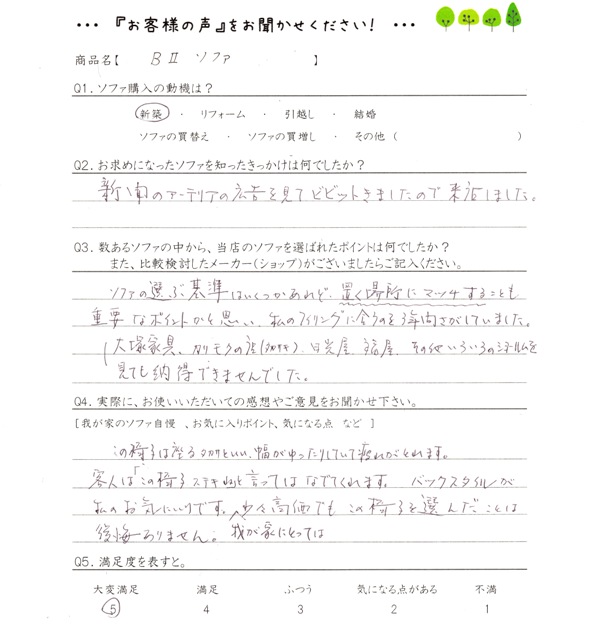 ･･･ 『お客様の声』をお聞かせください! ･･･
商品名【 BⅡ ソファ 】
Q1. ソファ購入の動機は?
新築 ・ リフォーム ・ 引越し ・ 結婚
ソファの買替え ・ ソファの買増し ・ その他 ( )
Q2. お求めになったソファを知ったきっかけは何でしたか?
の広告を見てビビットきましたので来店しました。
Q3. 数あるソファの中から、当店のソファを選ばれたポイントは何でしたか?
また、比較検討したメーカー(ショップ)がございましたらご記入ください。
ソファの選ぶ基準はいくつかあれど、置く場所にマッチすることも
重要なポイントかと思い、私のフィーリングに合うのを3年間さがしていました。
大塚家具、カリモクの店 その他いろいろのショールームを
見ても納得できませんでした。
Q4. 実際に、お使いいただいての感想やご意見をお聞かせ下さい。
[ 我が家のソファ自慢 、お気に入りポイント、気になる点 など ]
この椅子は座る いい、幅がゆったりしていて疲れがとれます。
客人は「この椅子ステキね」と言ってはなでてくれます。 バックスタイルが
私のお気にいりです。少々高価でもこの椅子を選んだことは
後悔ありません。我が家にとっては
Q5. 満足度を表すと。
大変満足 満足 ふつう 気になる点がある 不満
5 4 3 2 1